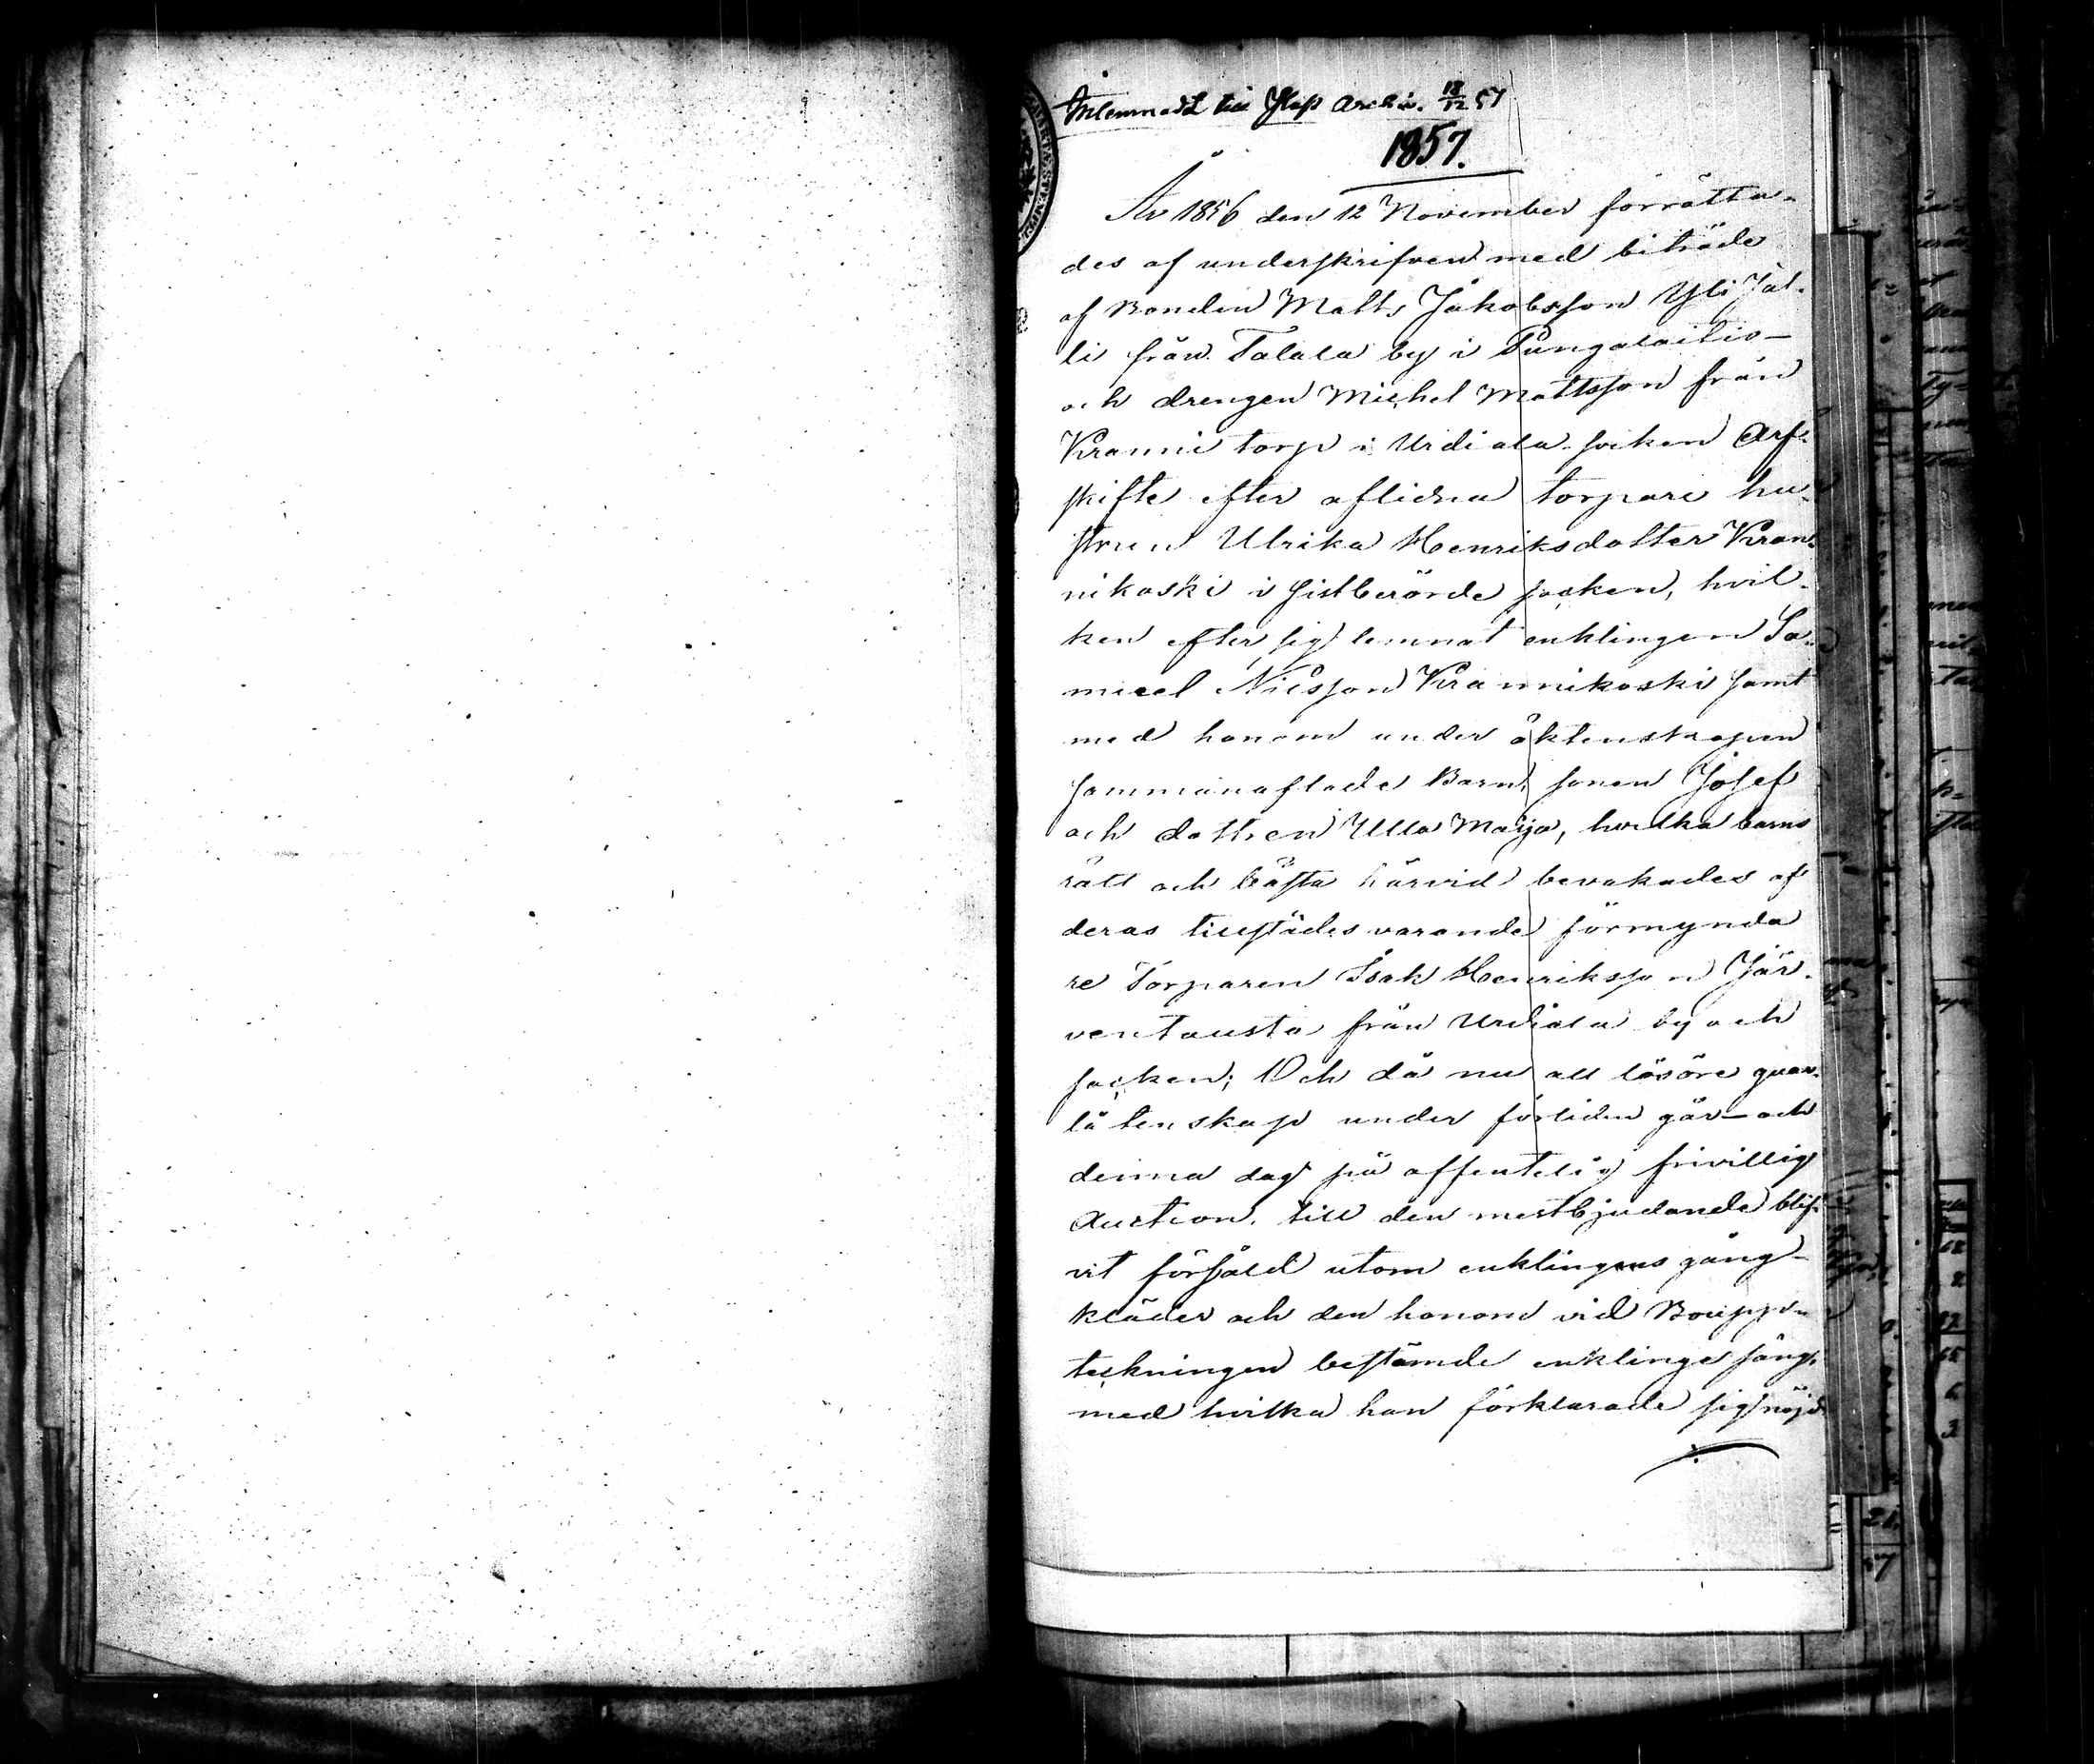 Inlemnadt till Häfs Archiv. 18/12 57
1857.
År 1856 den 12 November förrätta-
des af underskrifven med biträde
af Bonden Matts Jakobsson Yli Jät-
li från Talala by i Pungalaitio-
och drengen Michel Mattsson från
Kranni torp i Urdiala socken Arf-
skifte efter aflidna torpare hu-
strun Ulrika Henriksdotter Kran-
nikoski i sistberörde socken, hvil-
ken efter sig lemnat enklingen Sa-
muel Nilsson Krannikoski samt
med honom under äktenskapen
sammanaflade Barn, sonen Josef
och dottren Ulla Maija, hvilka barns
rätt och bästa härvid bevakades af
deras tillstädes varande förmynda
re Torparen Isak Henriksson Jär-
ventausta från Urdiala by och
socken; Och då nu all lösöre qvar-
låtenskap under förliden går- och
denna dag på offentelig frivillig
Auction, till den mestbjudande blif-
vit försåld utom enklingens gång-
kläder och den honom vid Bouppte-
teckningen bestämde enklinge säng,
med hvilka han förklarade sig nöjd